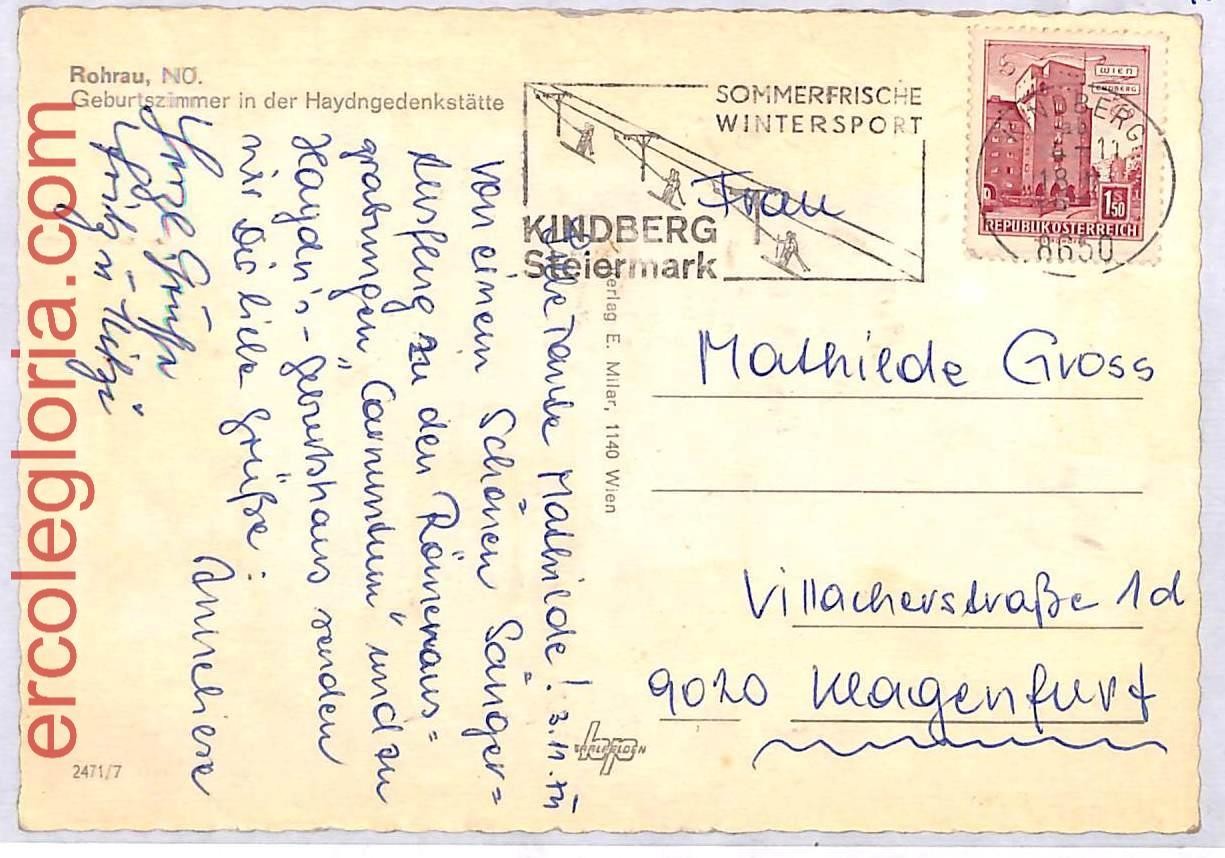 Rohrau, NÖ.
Geburtszimmer in der Haydngedenkstätte
SOMMERFRISCHE
WINTERSPORT
KINDBERG
Steiermark
WIEN
KINDBERG
-11
18
8650
150
REPUBLIK ÖSTERREICH
Tante Mathilde! 3.11.
Von einem schönen Sänger=
ausflug zu den Römeraus=
grabungen „Carnuntum" und zu
Haydn's-Geburtshaus senden
wir Dir liebe Grüße:
Anneliese
Frau
Mathilde Gross
Villacherstraße 1d
9020 Klagenfurt
Verlag E. Milar, 1140 Wien
2471/7
ercolegloria.com